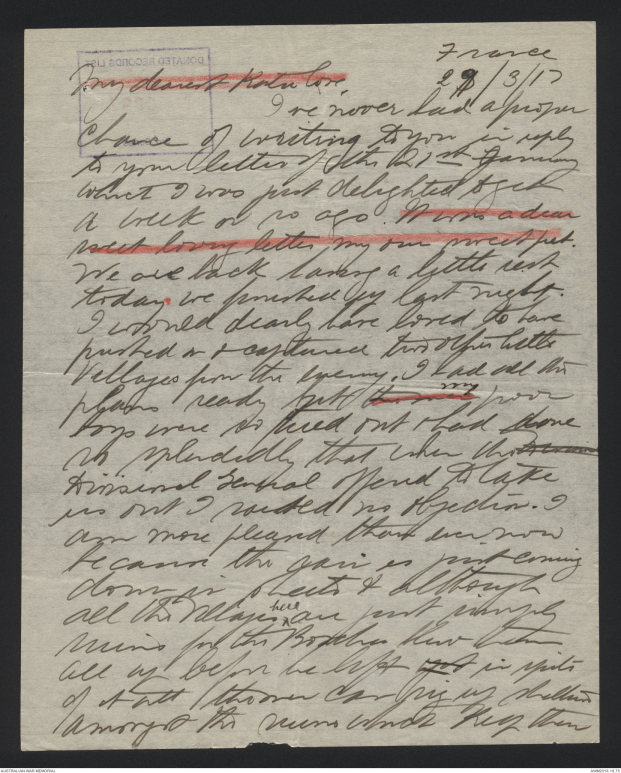 DONATED RECORDS LIST
France
29/3/17
My dearest Katie
I've never had a proper
chance of writing to you in reply
to your letter of the 21st January
which I was just delighted to get
a week or so ago. It was a dear
sweet loving letter my own sweet pet.
We are back having a little rest
today. we finished up last night.
I would dearly have loved to have
pushed on & captured two other little
villages from the enemy, I had all the
plans ready but the men my poor
boys were so tired out & had done
so splendidly that when the
Divisional General offered to take
us out I raised no objection. I
am more pleased than ever now
because the rain is just coming
down in sheets & although
all the villages here are just simply
ruins for the Bosches blew them
all up before he left in spite
of it all the men can rig up shelters
amongst the ruins which keep them
AUSTRALIAN WAR MEMORIAL